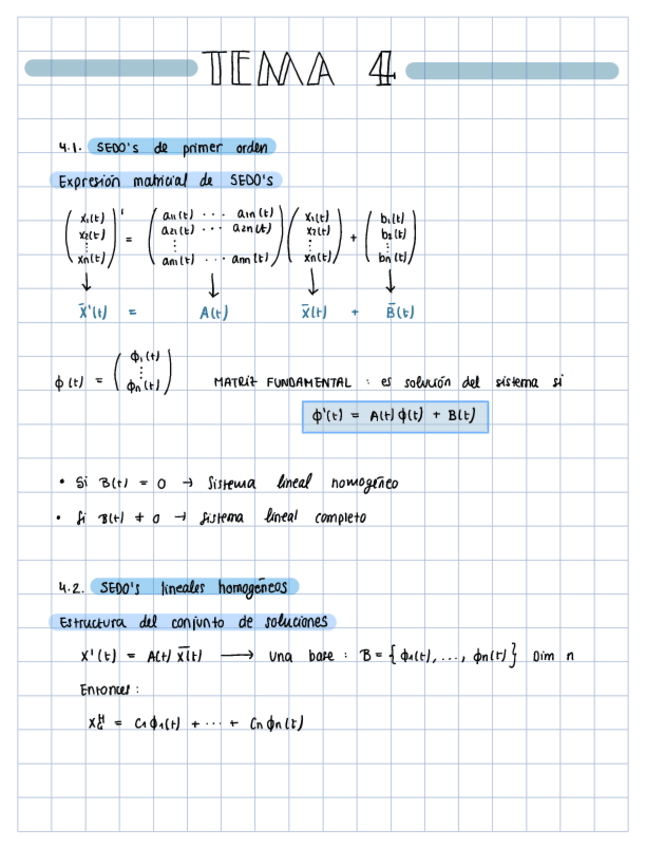 TEMA 4
4.1. SEDO's de primer orden
Expresión matricial de SEDO's
(x₁(t) x₂(t) ⋮ xn(t))' = (a₁₁(t) ... a₁n(t) a₂₁(t) ... a₂n(t) ⋮ an₁(t) ... ann(t)) (x₁(t) x₂(t) ⋮ xn(t)) + (b₁(t) b₂(t) ⋮ bn(t))
↓ ↓ ↓ ↓
X̄'(t) = A(t) x̄(t) + B̄(t)
ϕ(t) = (ϕ₁(t) ⋮ ϕn(t)) MATRIZ FUNDAMENTAL : es solución del sistema si
ϕ'(t) = A(t) ϕ(t) + B(t)
• Si B(t) = 0 → Sistema lineal homogéneo
• Si B(t) ≠ 0 → Sistema lineal completo
4.2. SEDO's lineales homogéneos
Estructura del conjunto de soluciones
X'(t) = A(t) x̄(t) → una base : B = {ϕ₁(t), ..., ϕn(t)} Dim n
Entonces :
X_G^H = C₁ϕ₁(t) + ... + Cnϕn(t)